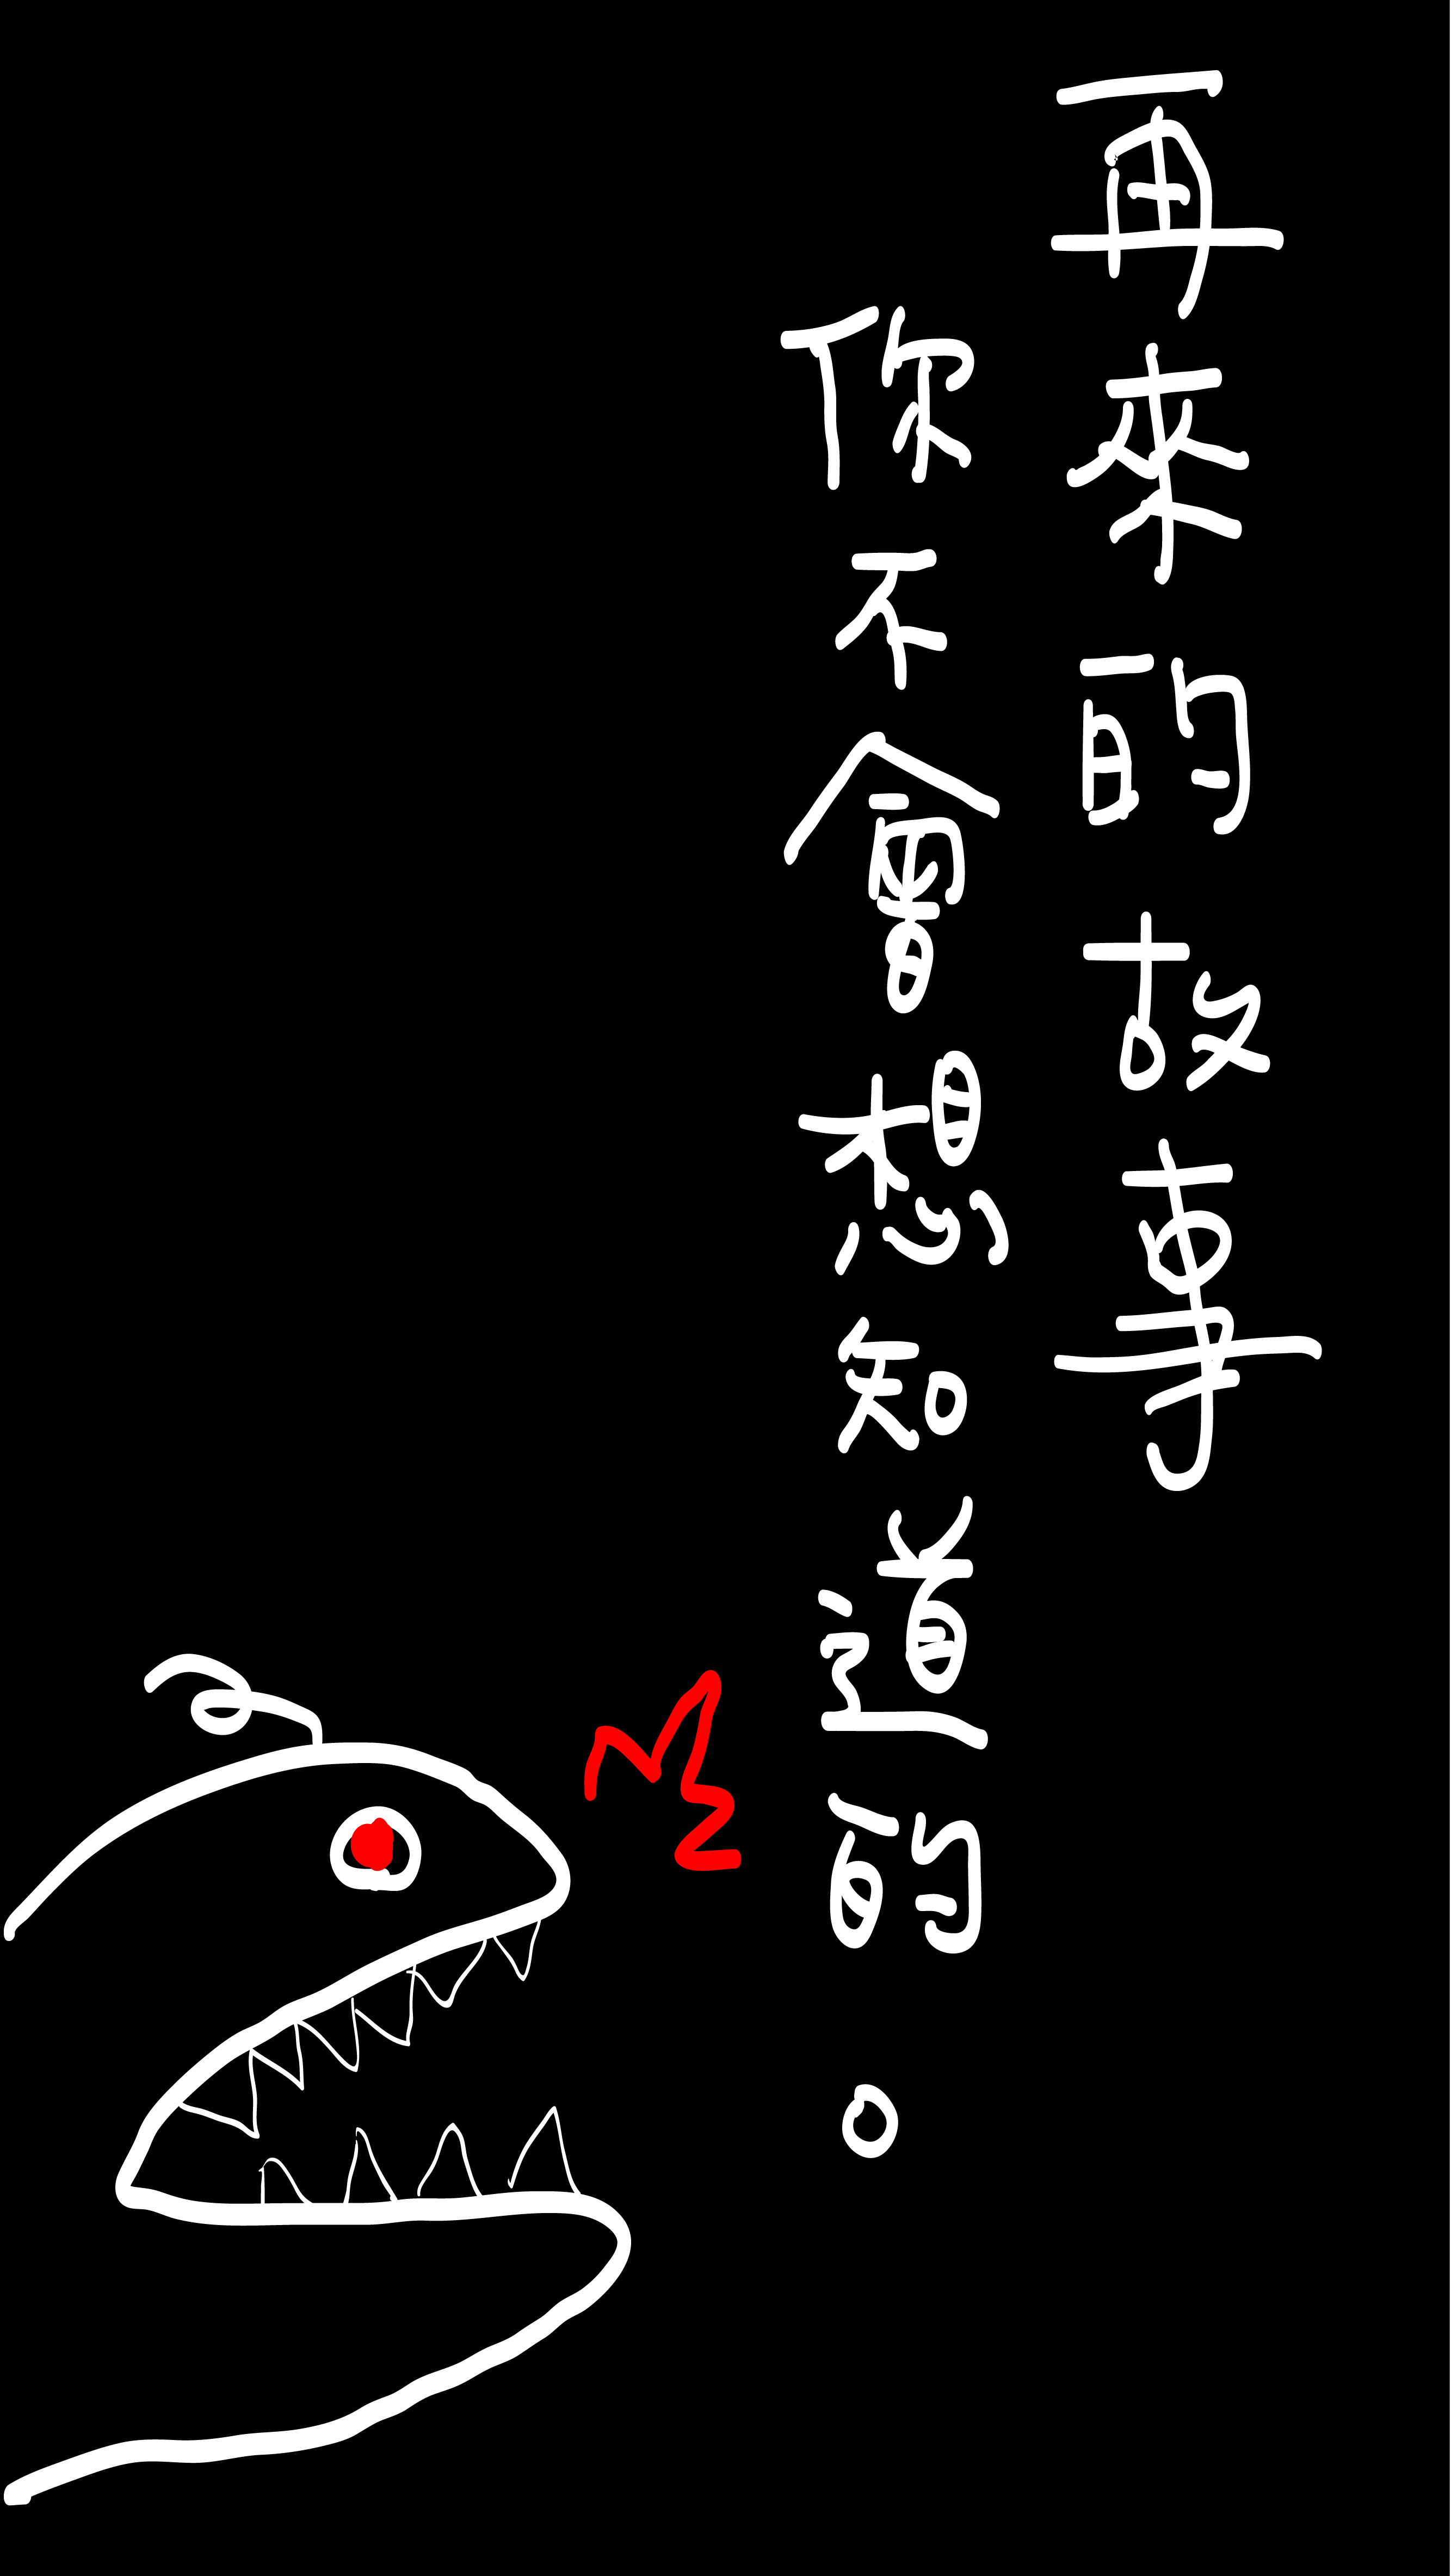 再來的故事
你不會想知道的。